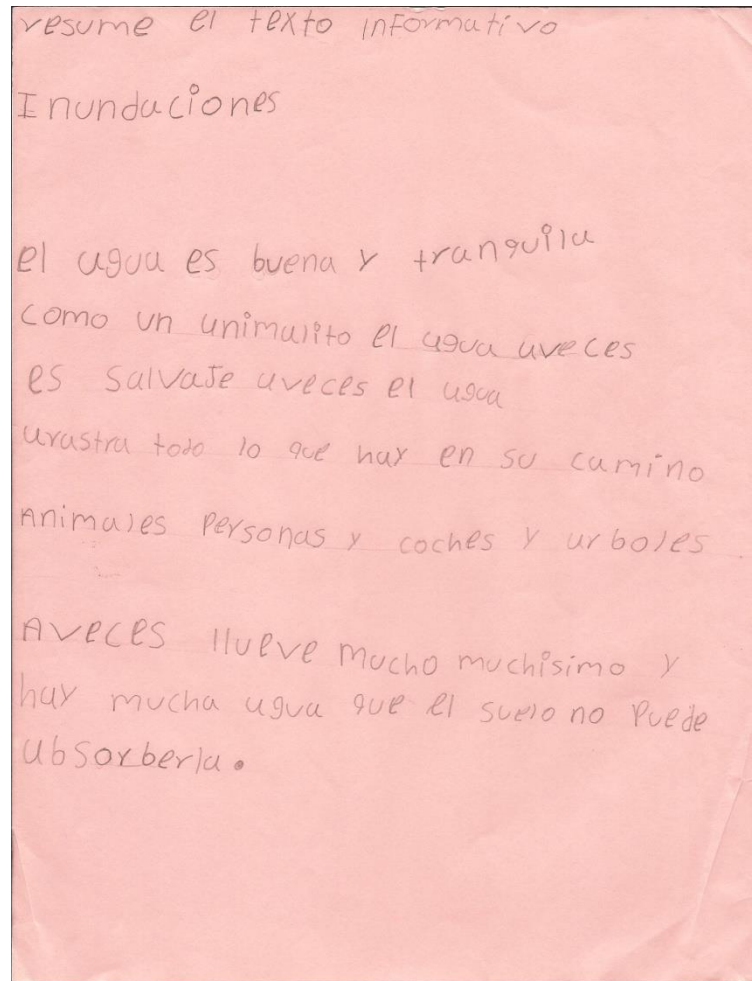 resume el texto informativo
Inundaciones
el agua es buena y tranquila
como un animalito el agua aveces
es salvaje aveces el agua
arastra todo lo que hay en su camino
Animales Personas y coches y arboles
Aveces llueve mucho muchisimo y
hay mucha agua que el suelo no Puede
absorberla.